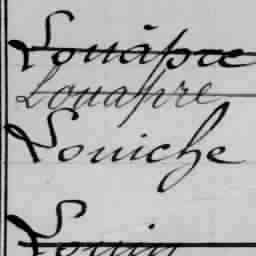 Louâpre
Louapre
Louiche
Louin